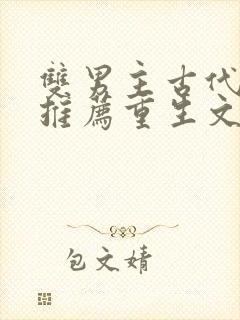 雙男主古代
推薦重生文
包文婧